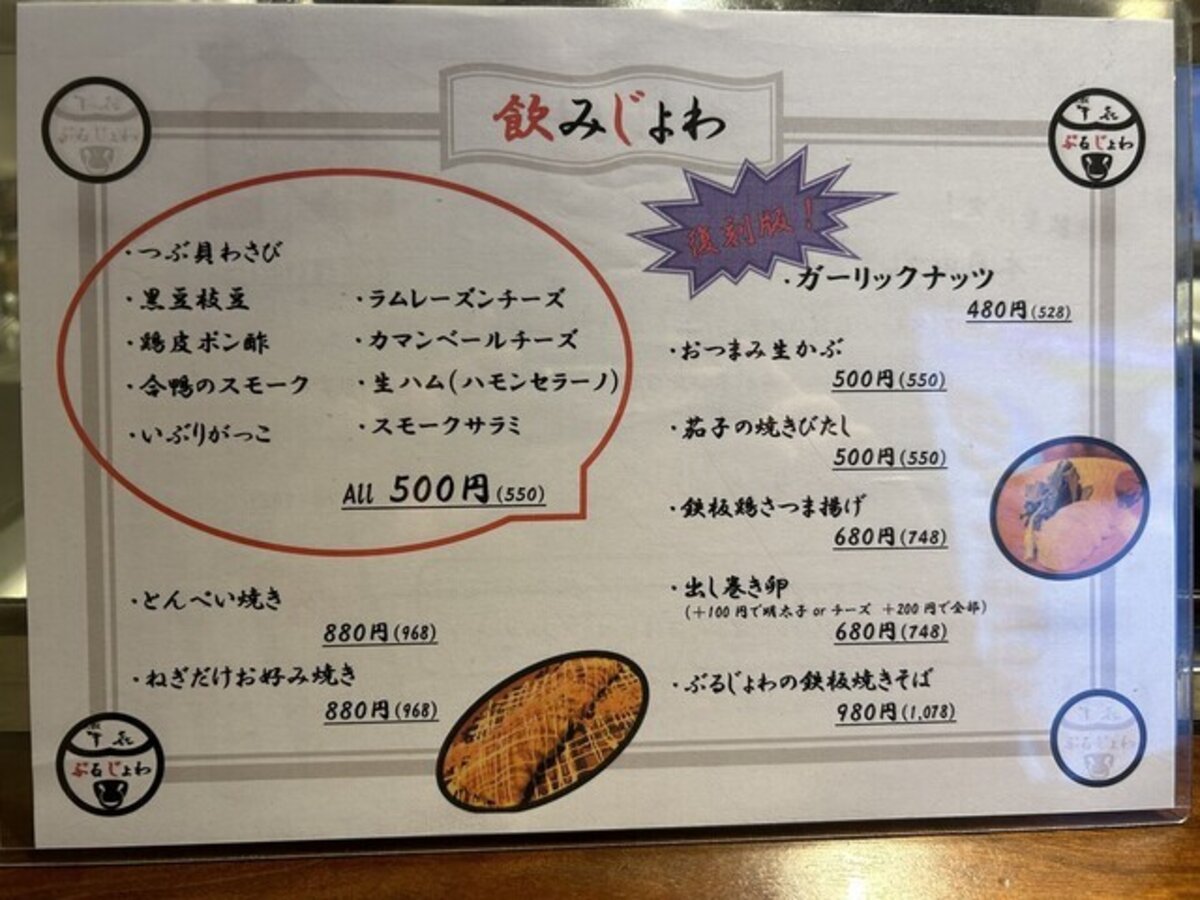 飲みじょわ
牛㐂
ぶるじょわ
・つぶ貝わさび
・黒豆枝豆
・鶏皮ポン酢
・合鴨のスモーク
・いぶりがっこ
・ラムレーズンチーズ
・カマンベールチーズ
・生ハム(ハモンセラーノ)
・スモークサラミ
All 500円(550)
・とんぺい焼き
880円(968)
・ねぎだけお好み焼き
880円(968)
復刻版!
・ガーリックナッツ
480円(528)
・おつまみ生かぶ
500円(550)
・茄子の焼きびたし
500円(550)
・鉄板鶏さつま揚げ
680円(748)
・出し巻き卵
(+100円で明太子 or チーズ +200円で全部)
680円(748)
・ぶるじょわの鉄板焼きそば
980円(1,078)
ぶるじょわ
ぶるじょわ
ぶるじょわ